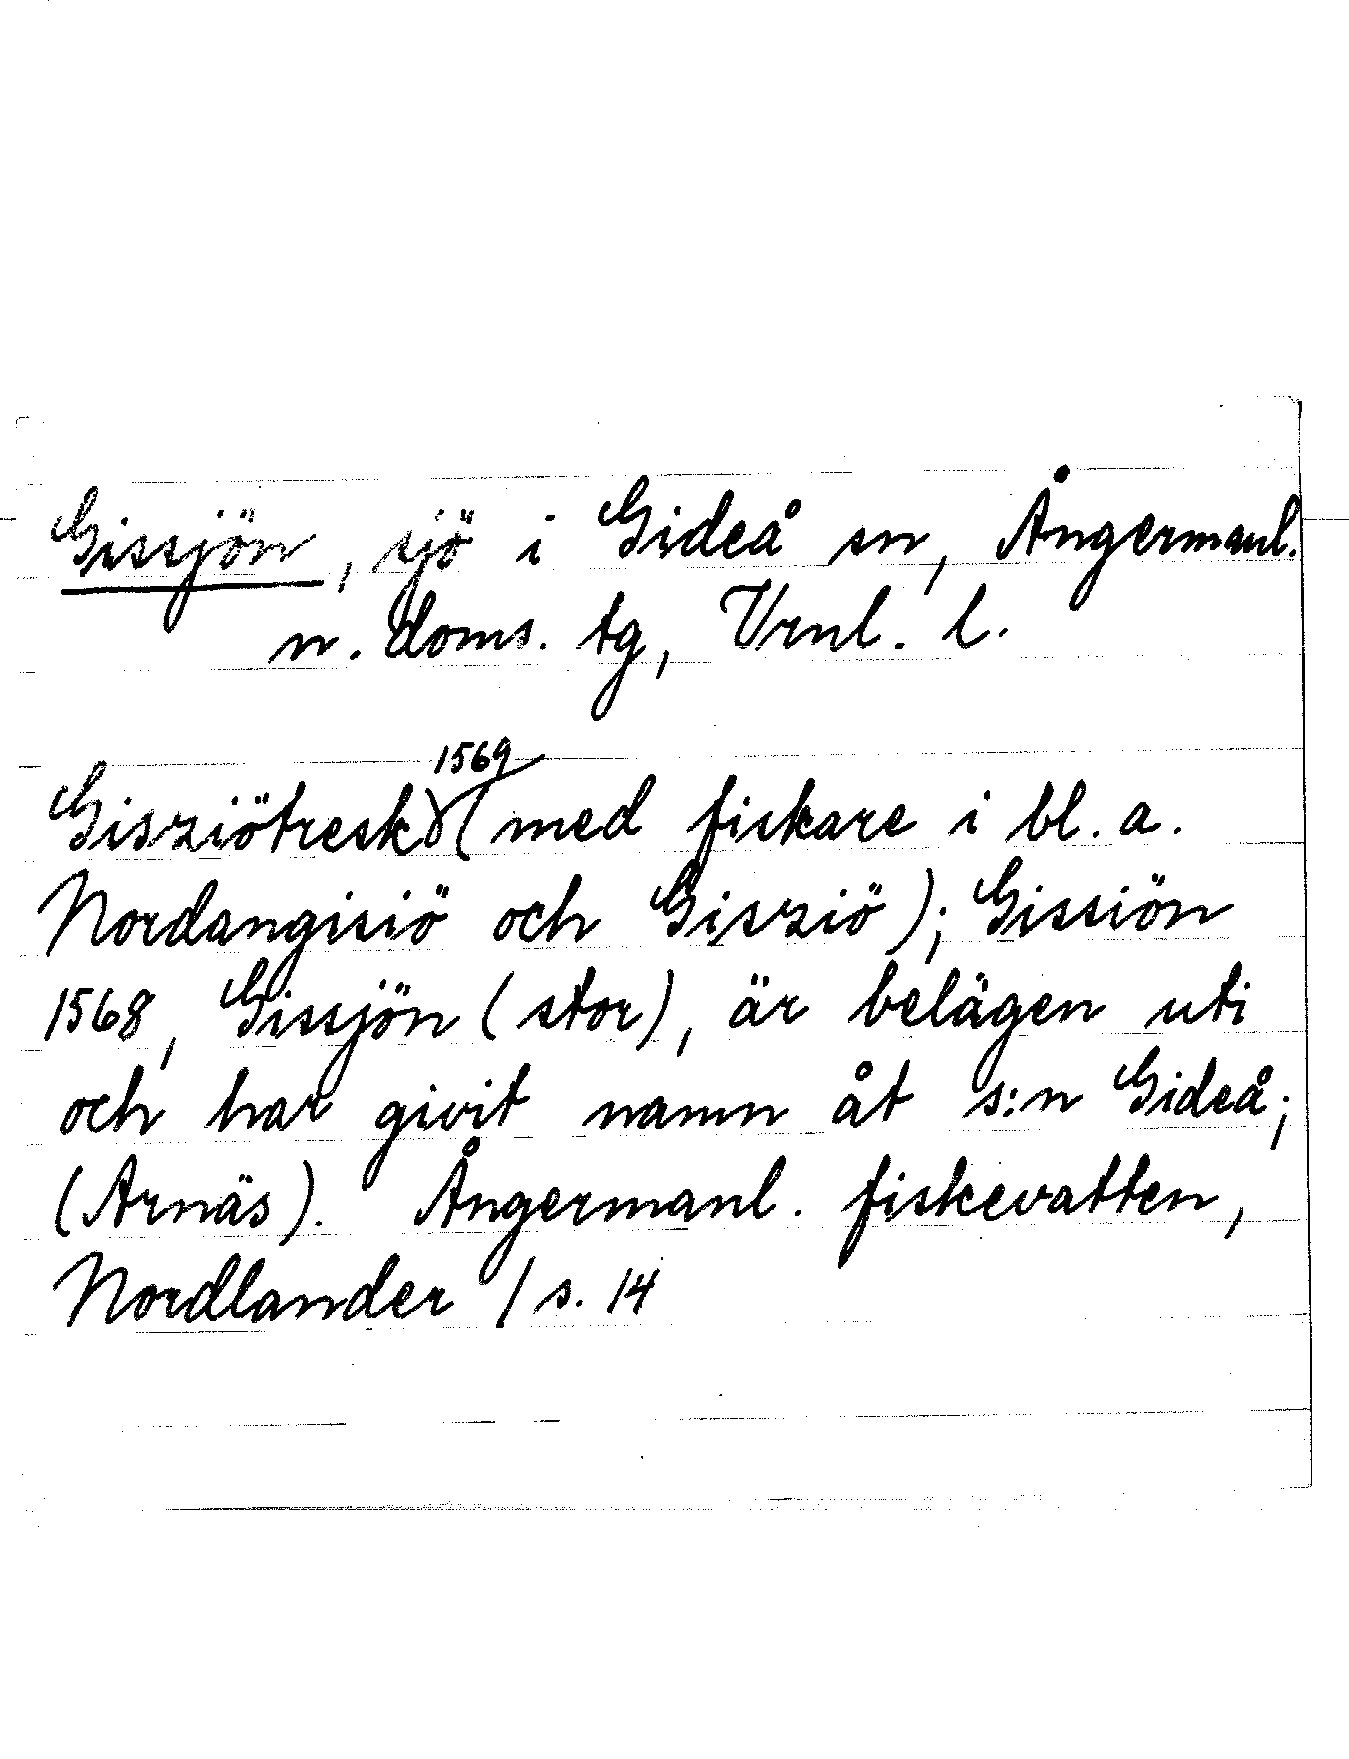 Gissjön, sjö i Gideå sn, Ångermanl.
n. doms. tg, Vrnl. l.
1569
Gisziötresk (med fiskare i bl. a.
Nordangisiö och Gisziö); Gissiön
1568, Gissjön (stor), är belägen uti
och har givit namn åt s:n Gideå;
(Arnäs). Ångermanl. fiskevatten,
Nordlander / s. 14